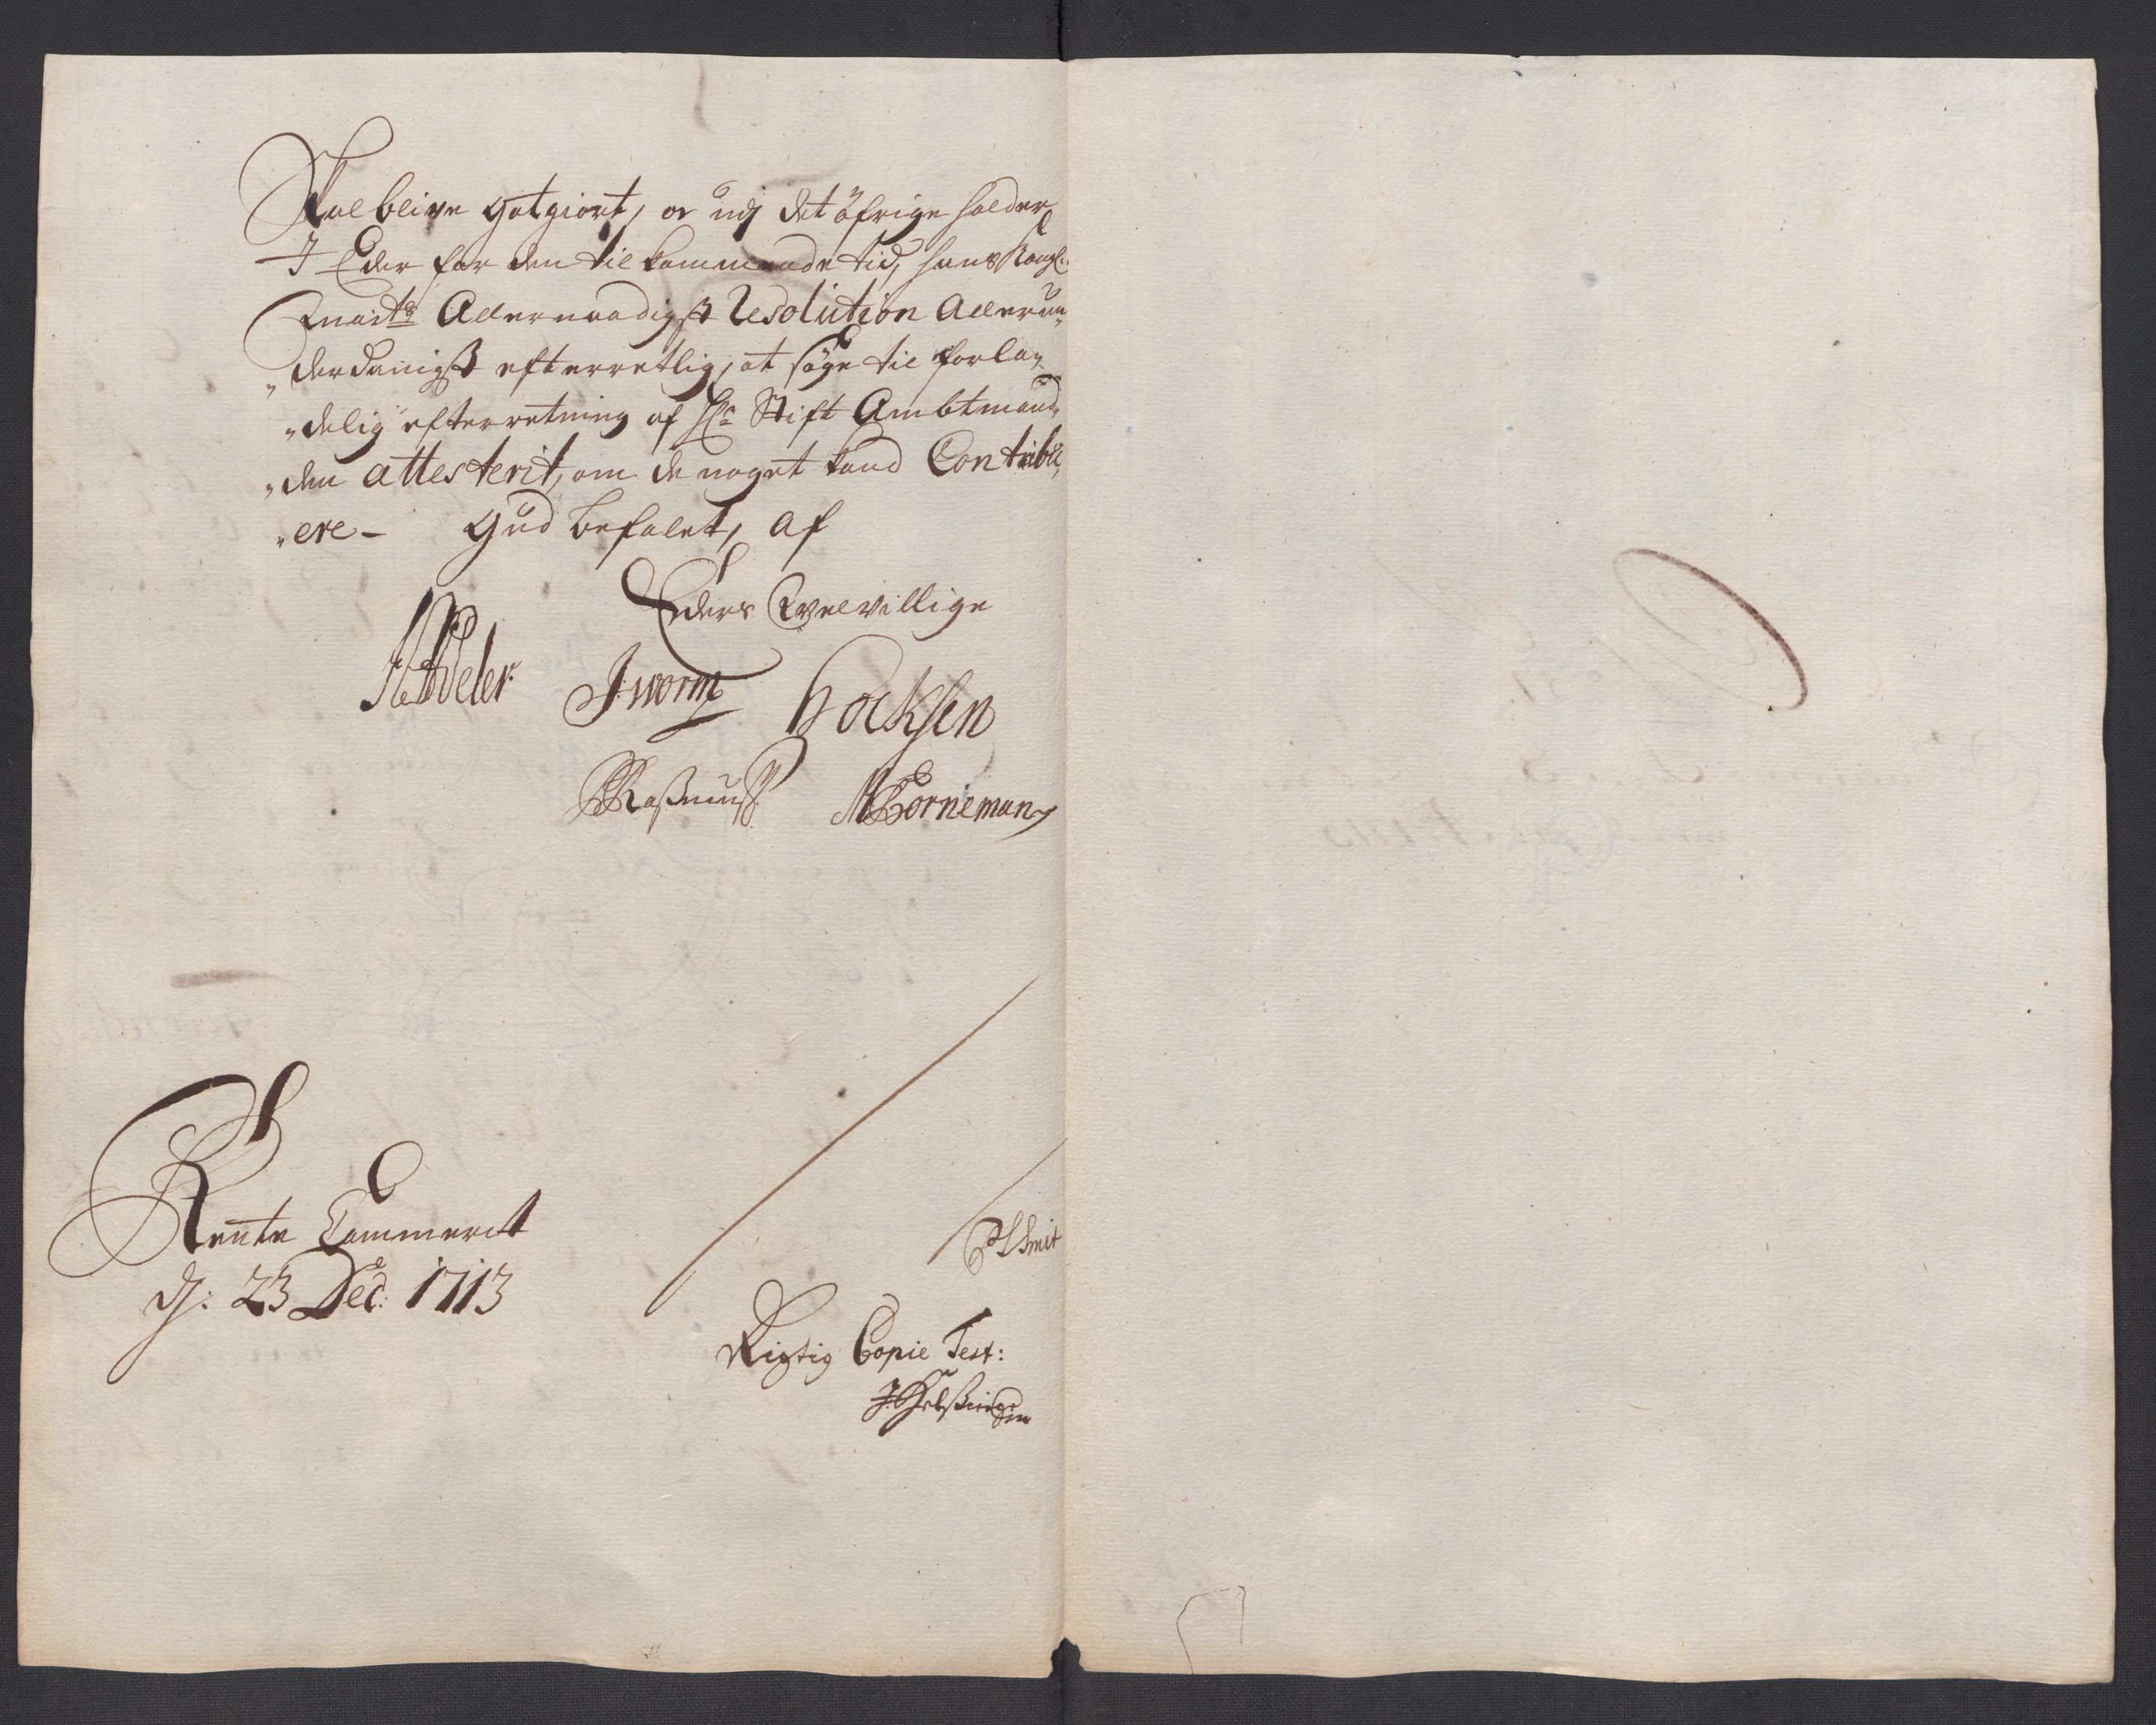 Skal blive gotgiort, og udj det öfrige holder
I Eder for den tilkommende tid, hans Kongl:
Maÿts Allernaadigst Resolution Allerun„
„derdanigst efterretlig, at söge til forla„
„delig efterretning af Hr Stift Ambtmand„
„den attesterit, om de noget kand Contribu„
„ere – Gud befalet, af
Eders Velvillige
Adeler J: worm hocksen
Rasmus Bornemann
Rente Cammerit
dj: 23 Dec: 1713
PSmit
Rigtig Copie Test: